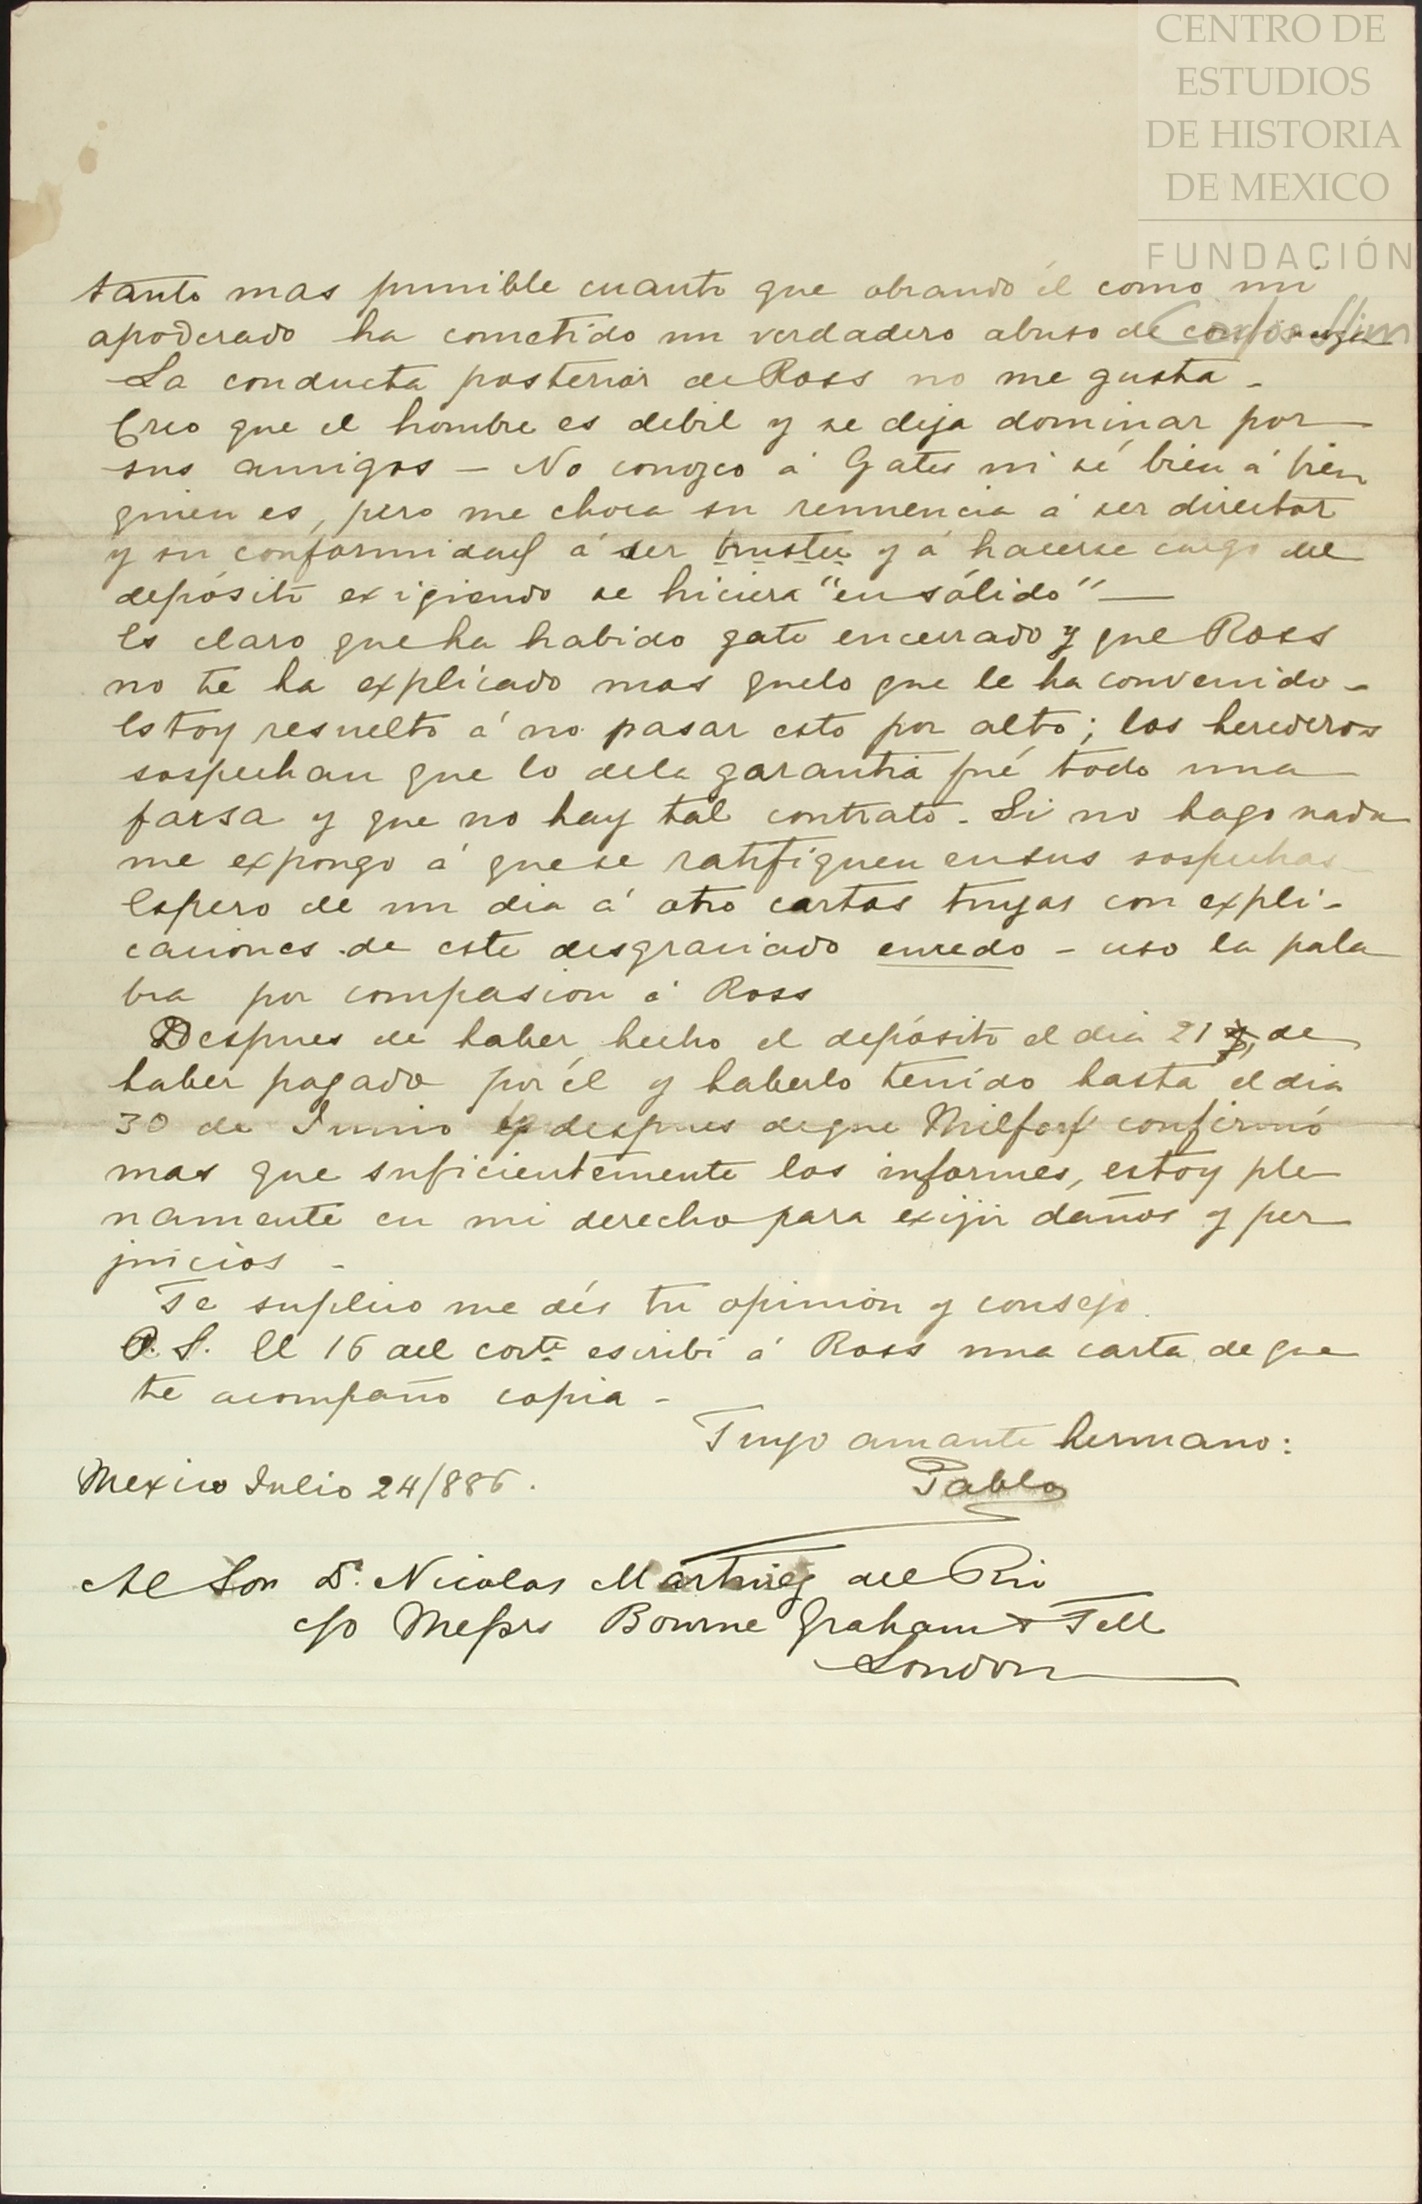 CENTRO DE
ESTUDIOS
DE HISTORIA
DE MEXICO
FUNDACIÓN
Carlos Slim
tanto mas punible cuanto que obrando él como mi
apoderado ha cometido un verdadero abuso de confianza
La conducta posterior de Ross no me gusta -
Creo que el hombre es debil y se deja dominar por
sus amigos - No conozco á Gates ni sé bien á bien
quien es, pero me choca su renuencia á ser director
y su conformidad á ser trustee y á hacerse cargo del
depósito exigiendo se hiciera "en sólido" —
Es claro que ha habido gato encerrado y que Ross
no te ha explicado mas que lo que le ha convenido -
Estoy resuelto á no pasar esto por alto; los herederos
sospechan que lo de la garantia fué todo una
farsa y que no hay tal contrato. Si no hago nada
me expongo á que se ratifiquen en sus sospechas
Espero de un dia á otro cartas tuyas con expli-
caciones de este desgraciado enredo - uso la pala
bra por compasion á Ross
Despues de haber hecho el depósito el dia 21, de
haber pagado por él y haberlo tenido hasta el dia
30 de Junio y despues de que Milford confirmó
mas que suficientemente los informes, estoy ple
namente en mi derecho para exijir daños y per
juicios -
Te suplico me dés tu opinion y consejo.
P. S. El 16 del corte escribi á Ross una carta de que
te acompaño copia -
Tuyo amante hermano:
Pablo
Mexico Julio 24/886.
Al Sor D. Nicolas Martinez del Rio
c/o Messrs Bourne Graham & Tell
London